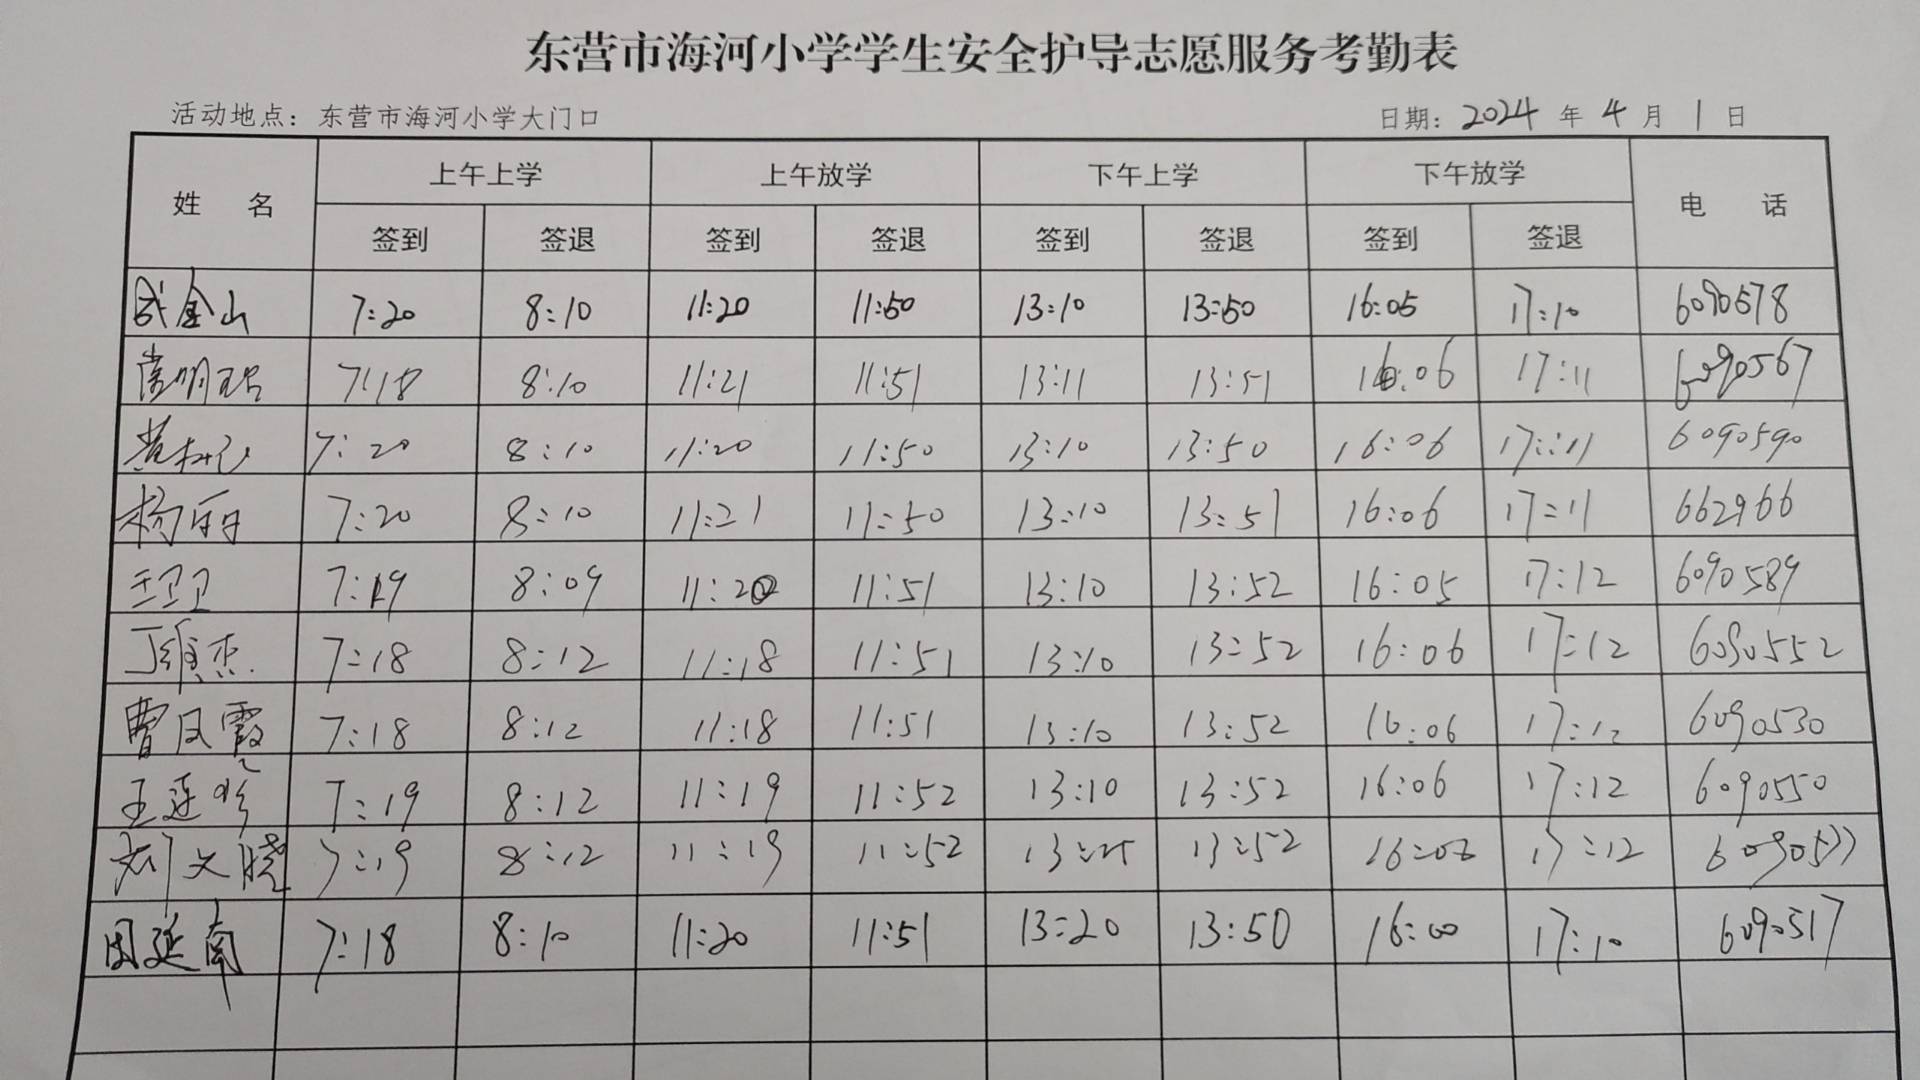 东营市海河小学学生安全护导志愿服务考勤表
活动地点：东营市海河小学大门口 日期：2024 年 4 月 1 日
姓 名 上午上学 上午放学 下午上学 下午放学 电 话
签到 签退 签到 签退 签到 签退 签到 签退
金山 7:20 8:10 11:20 11:50 13:10 13:50 16:05 17:10 6090578
明 7:18 8:10 11:21 11:51 13:11 13:51 16:06 17:11 6090567
黄 7:20 8:10 11:20 11:50 13:10 13:50 16:06 17:11 6090590
杨丽 7:20 8:10 11:21 11:50 13:10 13:51 16:06 17:11 662966
王卫卫 7:19 8:09 11:20 11:51 13:10 13:52 16:05 17:12 6090589
丁维杰 7:18 8:12 11:18 11:51 13:10 13:52 16:06 17:12 6090552
曹凤霞 7:18 8:12 11:18 11:51 13:10 13:52 16:06 17:12 6090530
王延 7:19 8:12 11:19 11:52 13:10 13:52 16:06 17:12 6090550
刘文晓 7:19 8:12 11:19 11:52 13:52 16:06 17:12
田延南 7:18 8:10 11:20 11:51 13:20 13:50 16:00 17:10 6090517